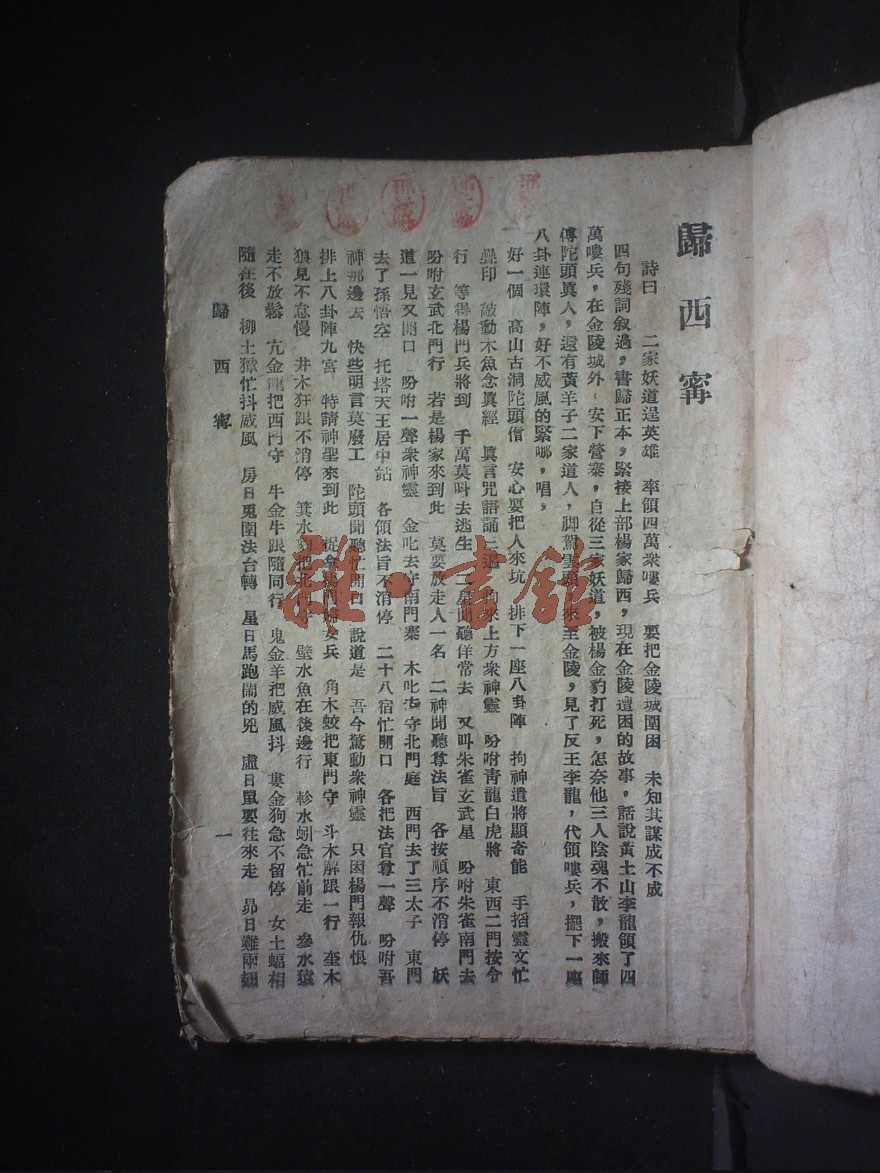 歸西寗
詩曰　二家妖道逞英雄　率領四萬衆嘍兵　要把金陵城圍困　未知其謀成不成
四句殘詞敘過，書歸正本，緊接上部楊家歸西，現在金陵遭困的故事，話說黃土山李龍領了四
萬嘍兵，在金陵城外，安下營寨，自從三家妖道，被楊金豹打死，怎奈他三人陰魂不散，搬來師
傅陀頭眞人，還有黃羊子二家道人，脚駕雲頭，來至金陵，見了反王李龍，代領嘍兵，擺下一座
八卦連環陣，好不威風的緊哪，唱，
好一個　高山古洞陀頭僧　安心要把人來坑　排下一座八卦陣　拘神遣將顯奇能　手搯靈文忙
疊印　敲動木魚念眞經　眞言咒語誦三遍　拘來上方衆神靈　吩咐靑龍白虎將　東西二門按令
行　等得楊門兵將到　千萬莫呌去逃生　二星聞聽佯常去　又叫朱雀玄武星　吩咐朱雀南門去
吩咐玄武北門行　若是楊家來到此　莫要放走人一名　二神聞聽尊法旨　各按順序不消停　妖
道一見又開口　吩咐一聲衆神靈　金叱去守南門寨　木叱去守北門庭　西門去了三太子　東門
去了孫悟空　托塔天王居中站　各領法旨不消停　二十八宿忙開口　各把法官尊一聲　吩咐吾
神那邊去　快些明言莫廢工　陀頭聞聽忙開口　說道是　吾今驚動衆神靈　只因楊門報仇恨
排上八卦陣九宮　特請神聖來到此　捉拿楊門婦女兵　角木蛟把東門守　斗木解跟一行　奎木
狼見不怠慢　井木犴跟不消停　箕水豹把北門守　壁水魚在後邊行　軫水蚓急忙前走　參水猿
走不放鬆　亢金龍把西門守　牛金牛跟隨同行　鬼金羊把威風抖　婁金狗急不留停　女土蝠相
隨在後　柳土獐忙抖威風　房日兎圍法台轉　星日馬跑鬧的兇　虛日鼠要往來走　昴日雞兩翅
歸西寗
一
雜·書館